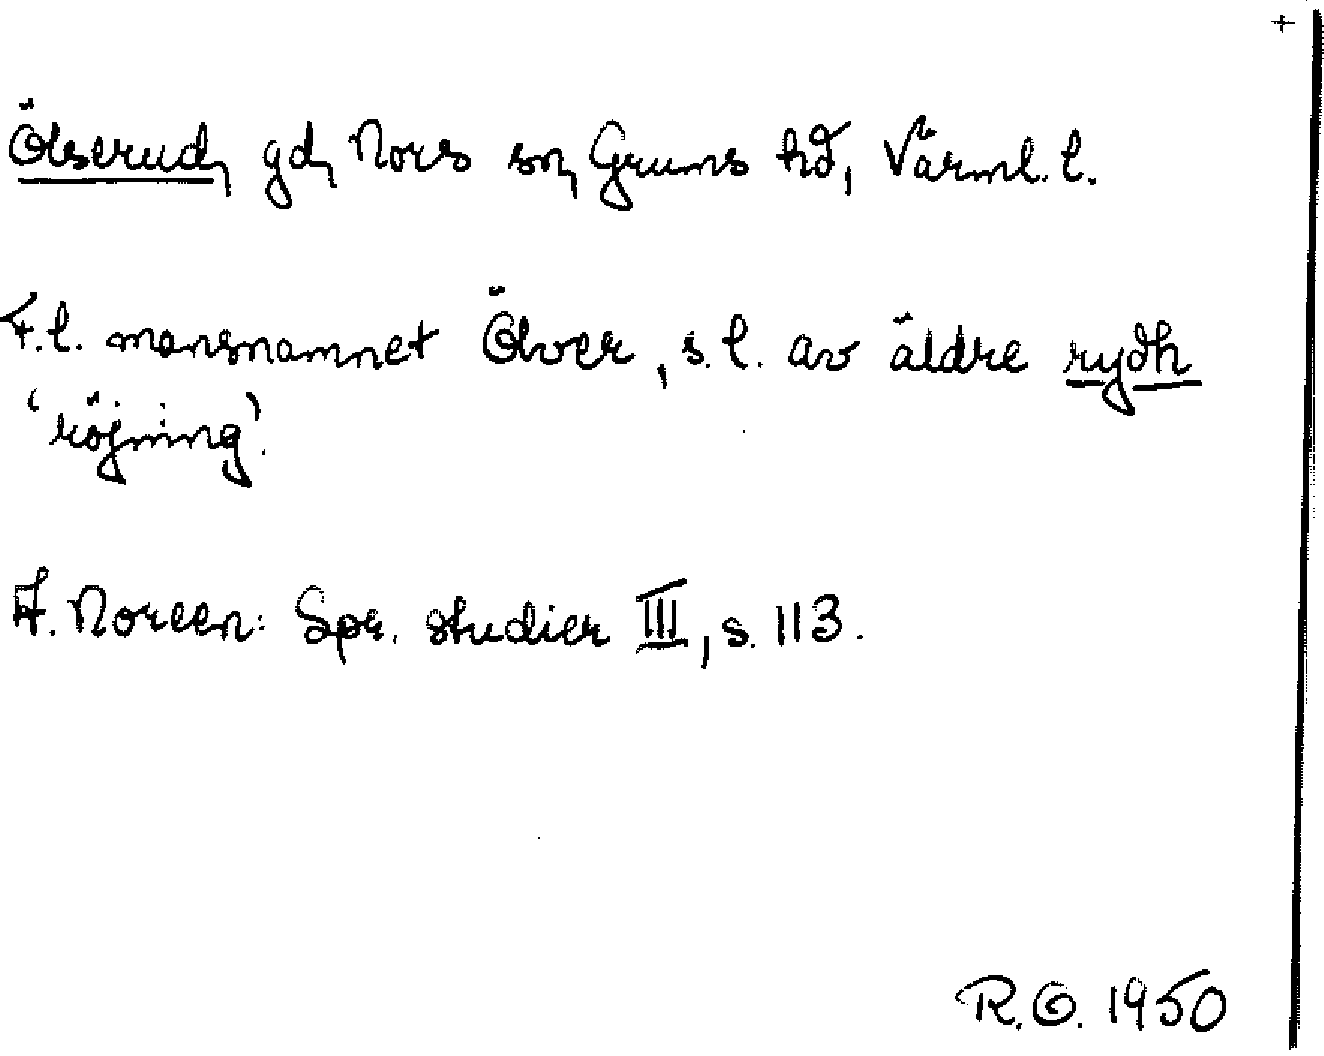 +
Ölserud, gd, Nors sn, Grums hd, Värml. l.
F.l. mansnamnet Ölver, s.l. av äldre rydh
'röjning'.
A. Noreen: Spr. studier III, s. 113.
R.O. 1950